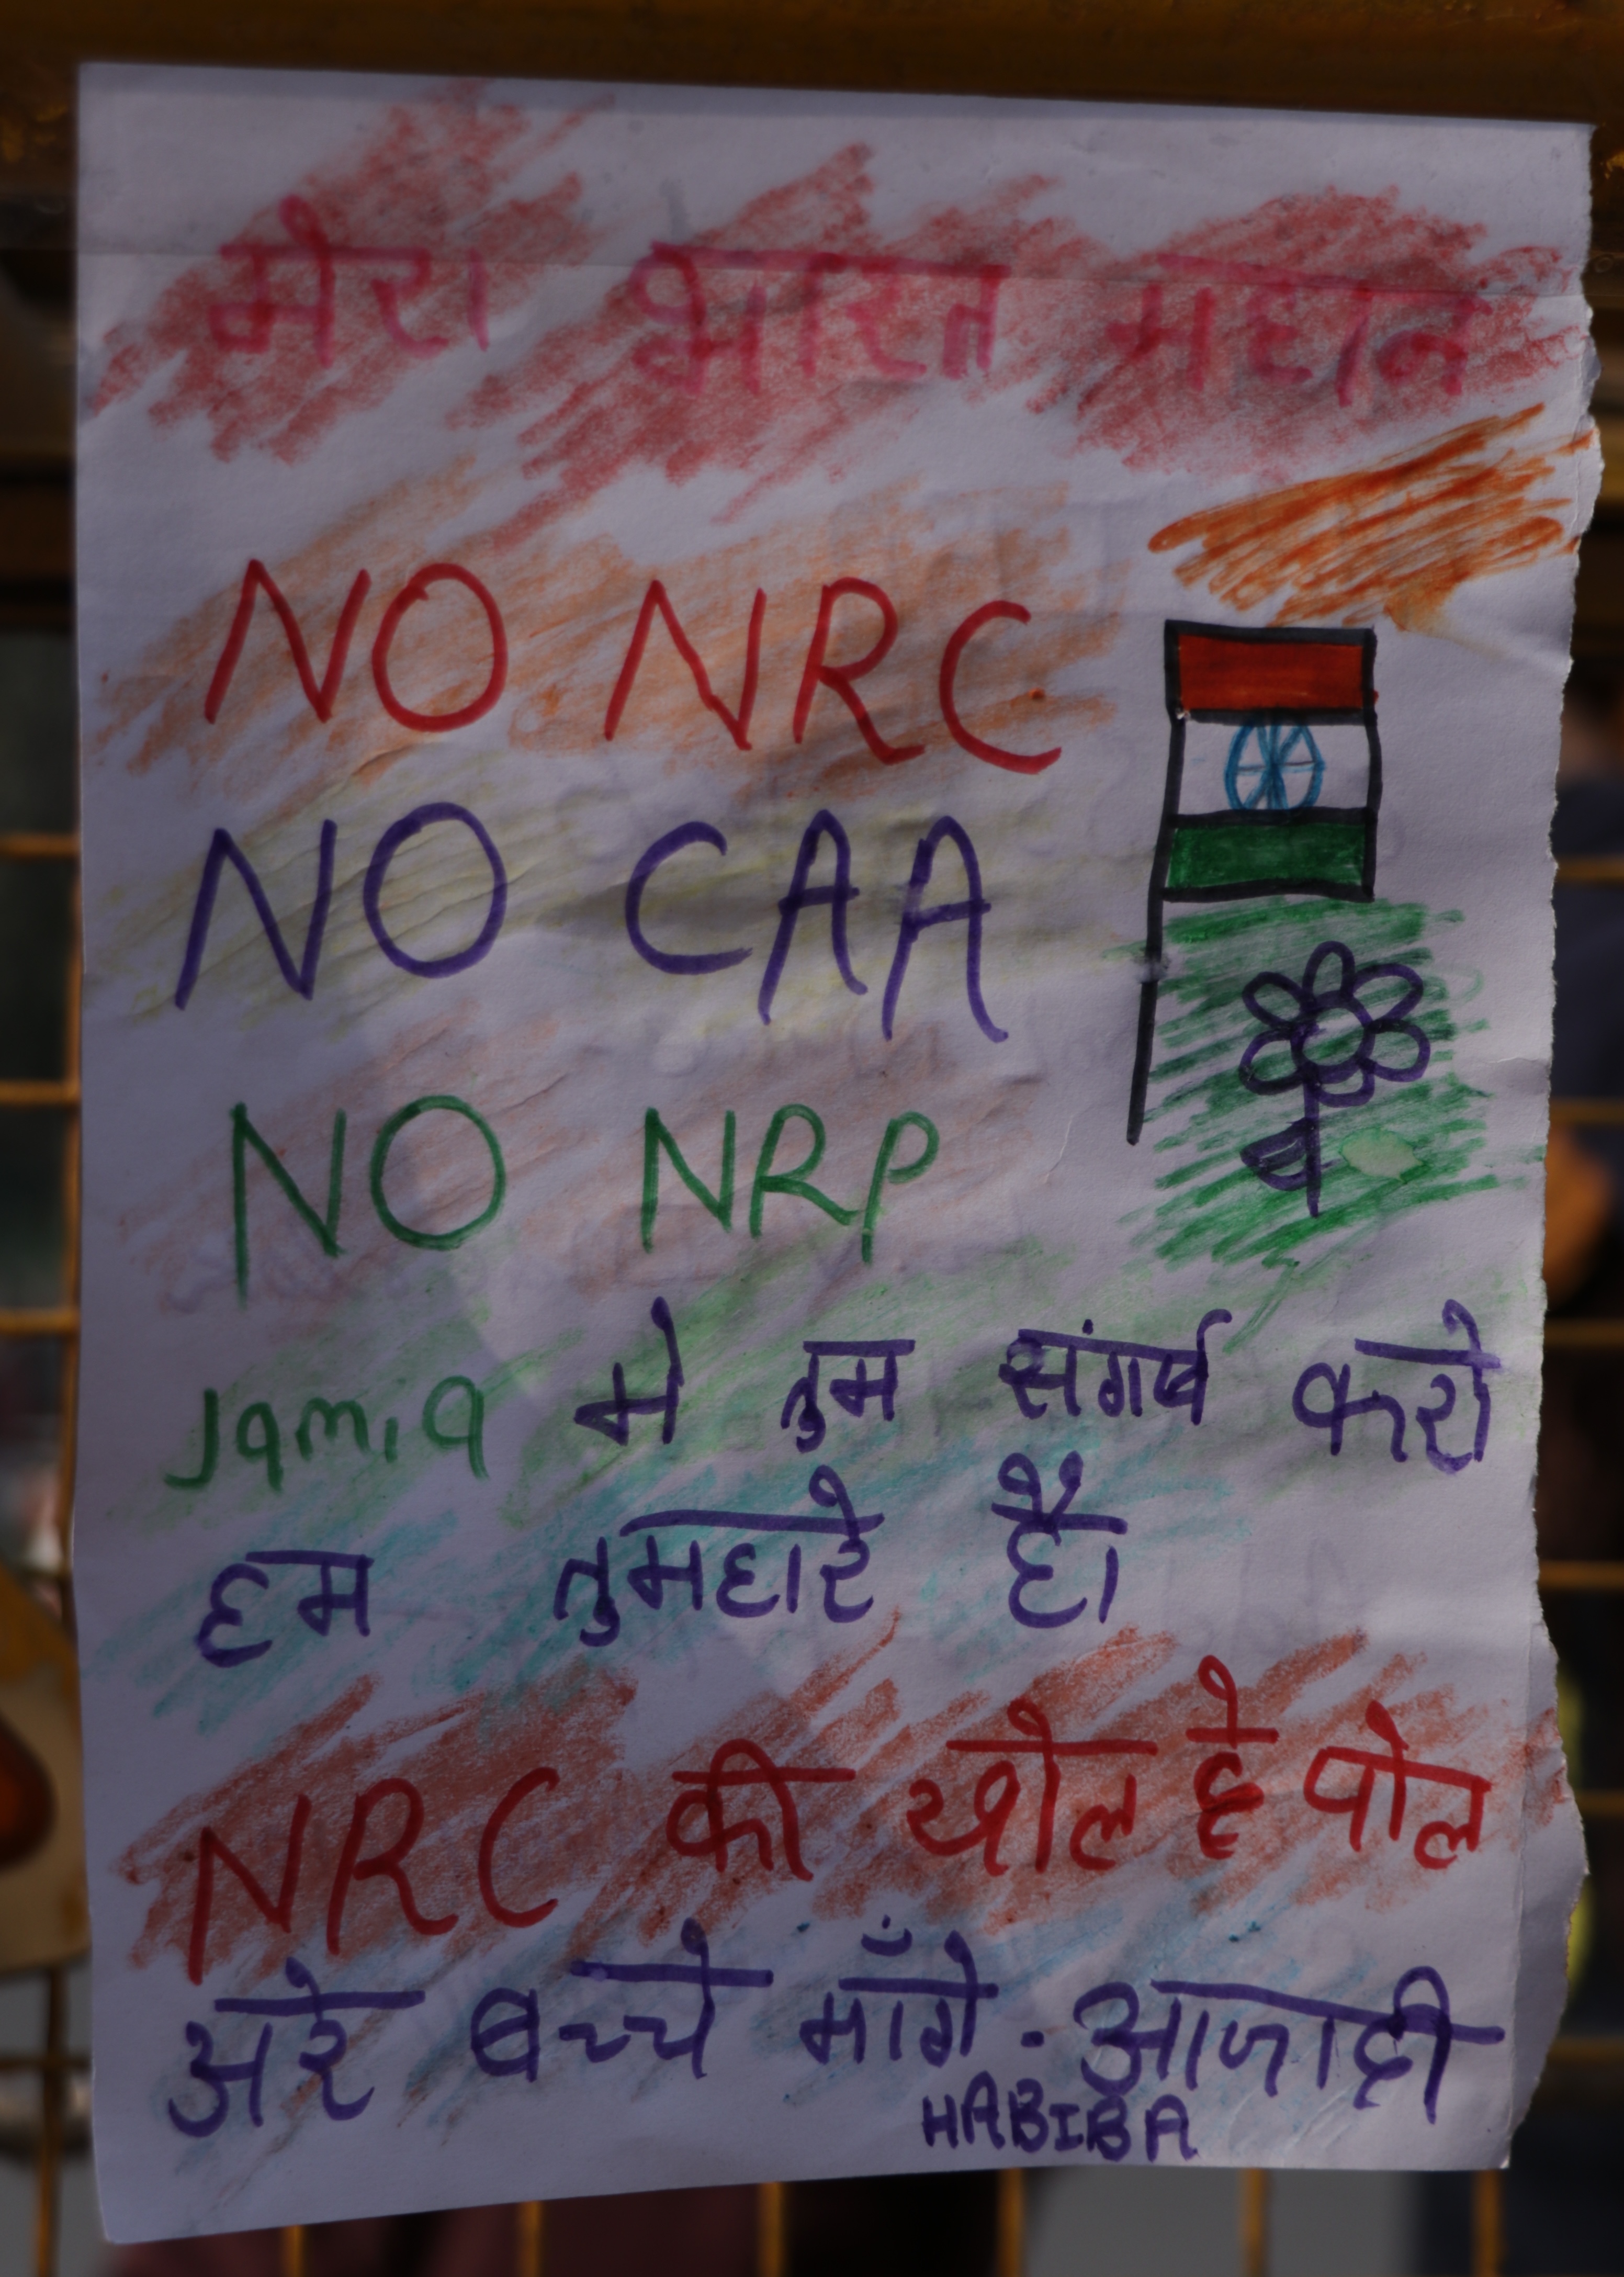 मेरा भारत महान
NO NRC
NO CAA
NO NRP
Jamia मे तुम संगर्ष करो
हम तुमहारे हैं।
NRC की खोल दे पोल
अरे बच्चे माँगे . आजादी
HABIBA